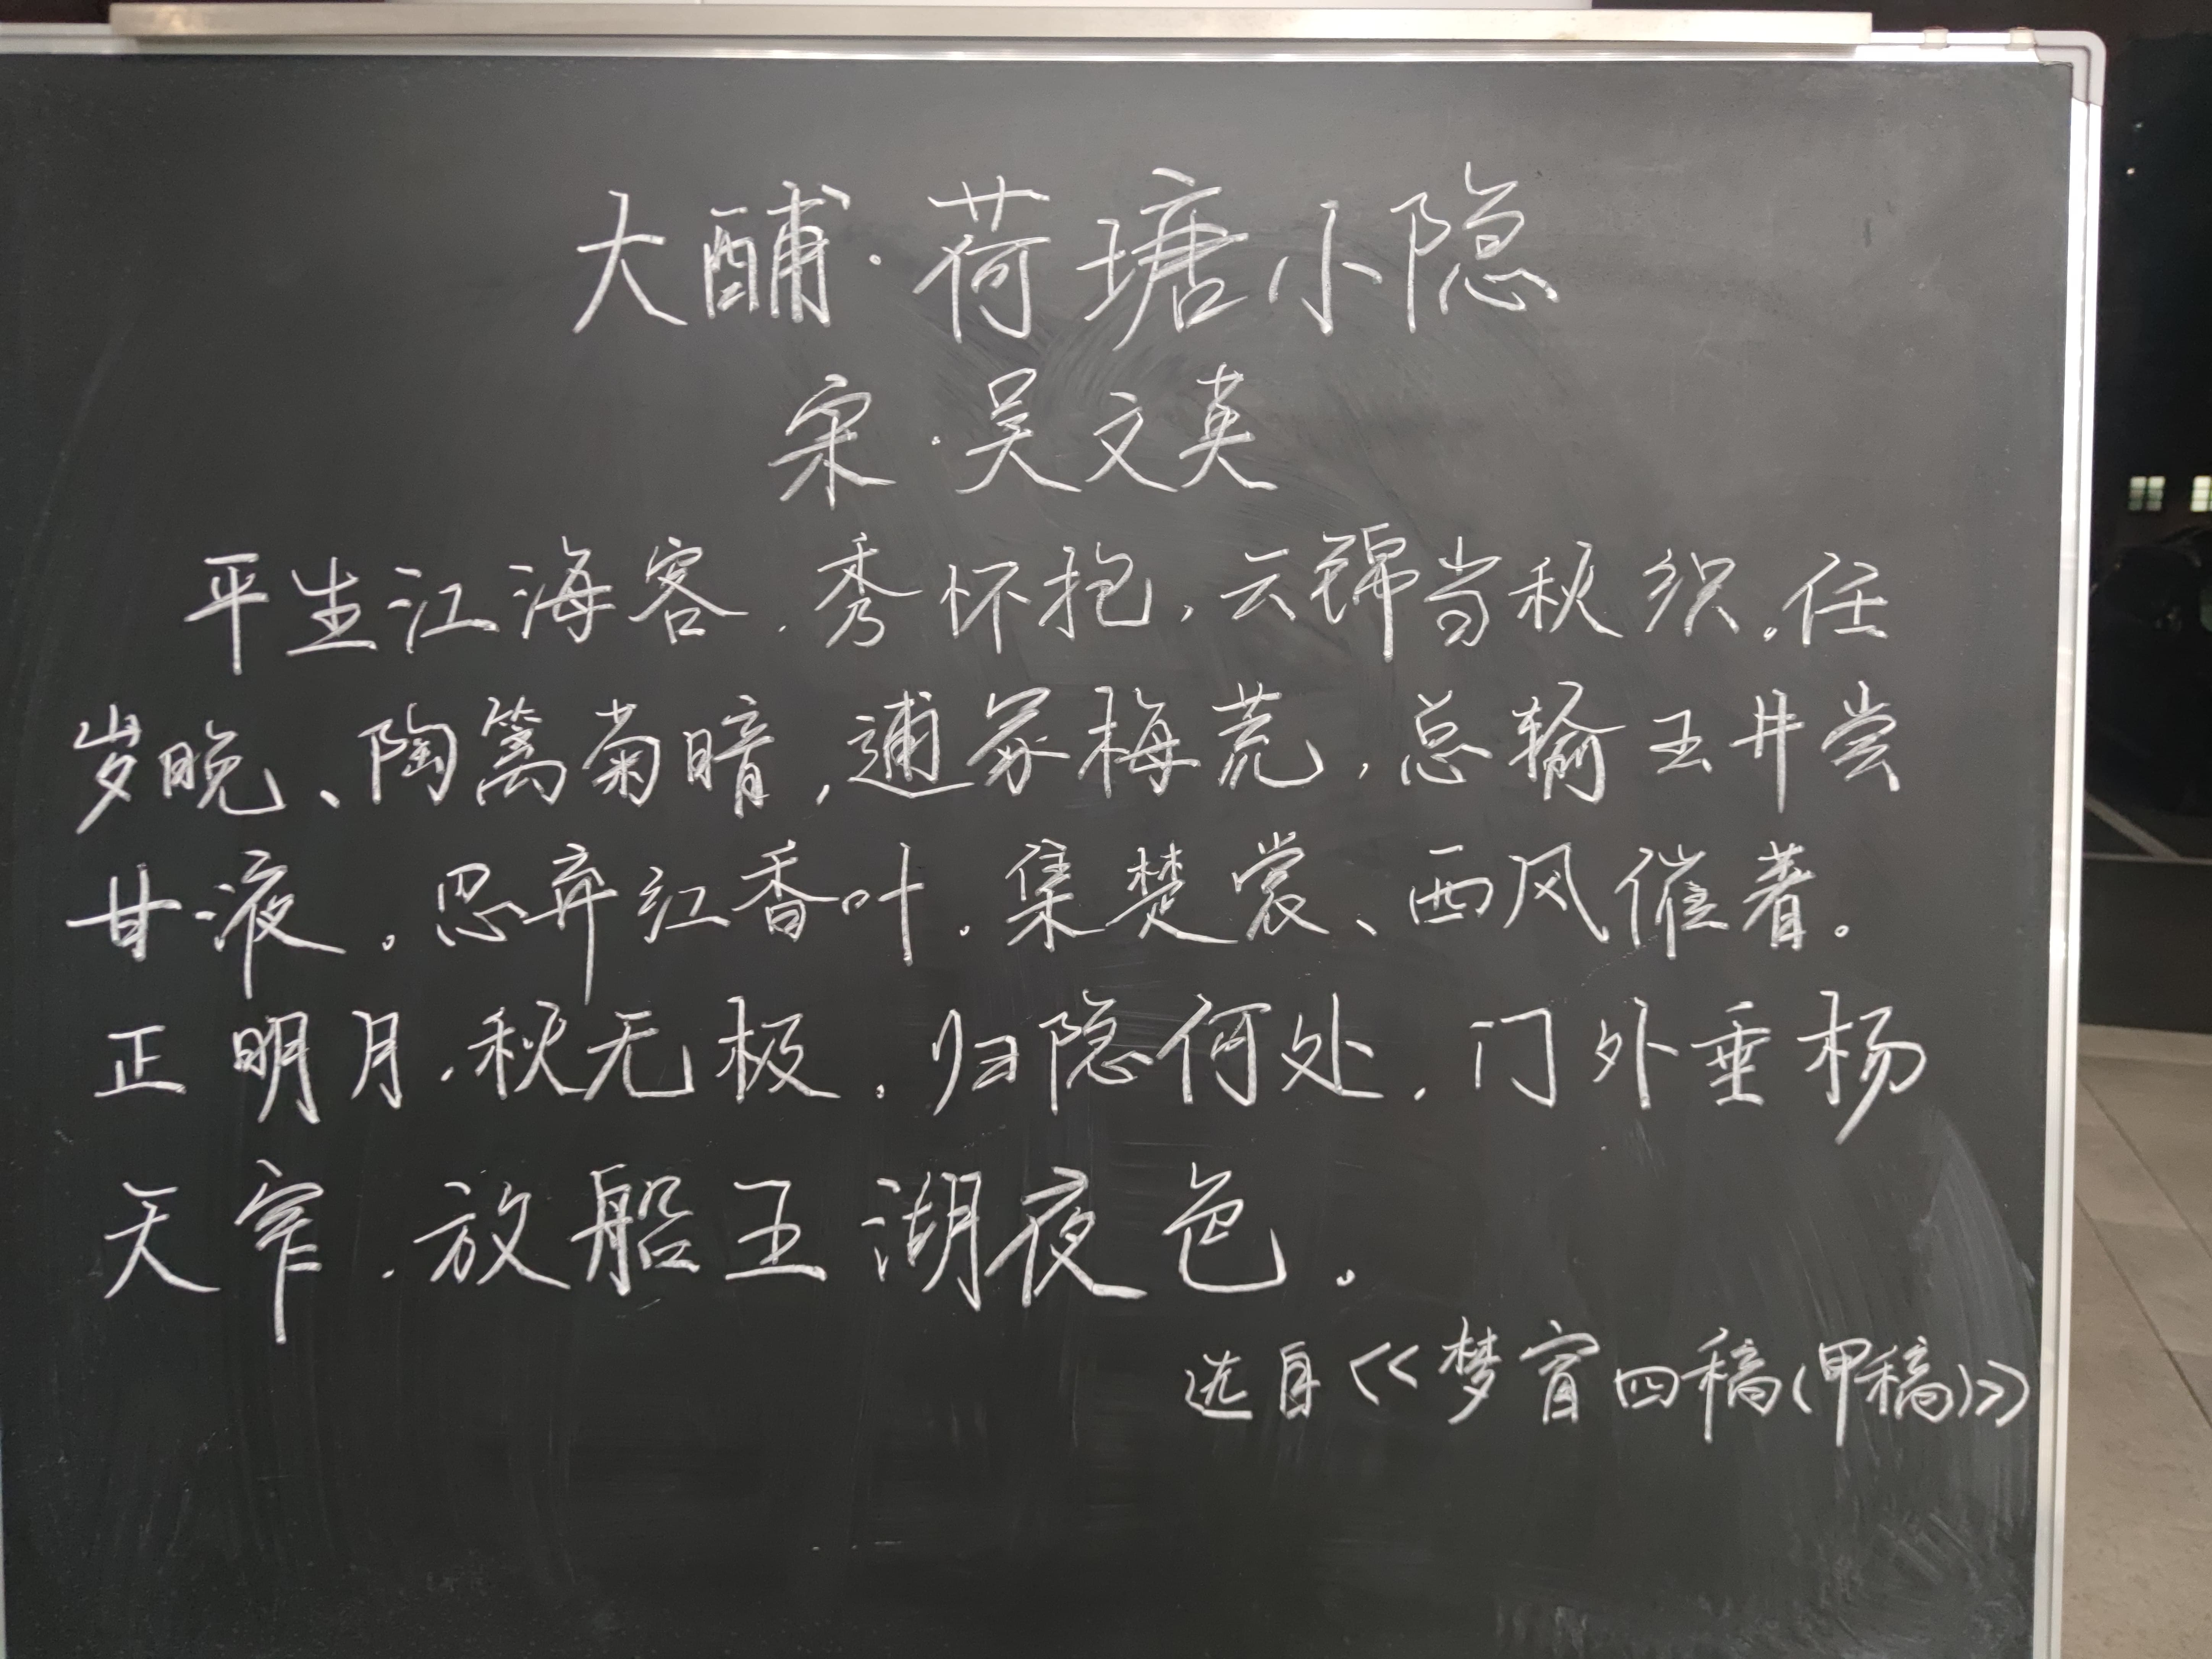 大酺·荷塘小隐
宋·吴文英
平生江海客，秀怀抱，云锦当秋织。任
岁晚、陶篱菊暗，逋冢梅荒，总输玉井尝
甘液。忍弃红香叶。集楚裳、西风催著。
正明月，秋无极，归隐何处，门外垂杨
天窄，放船五湖夜色。
选自《梦窗四稿(甲稿)》